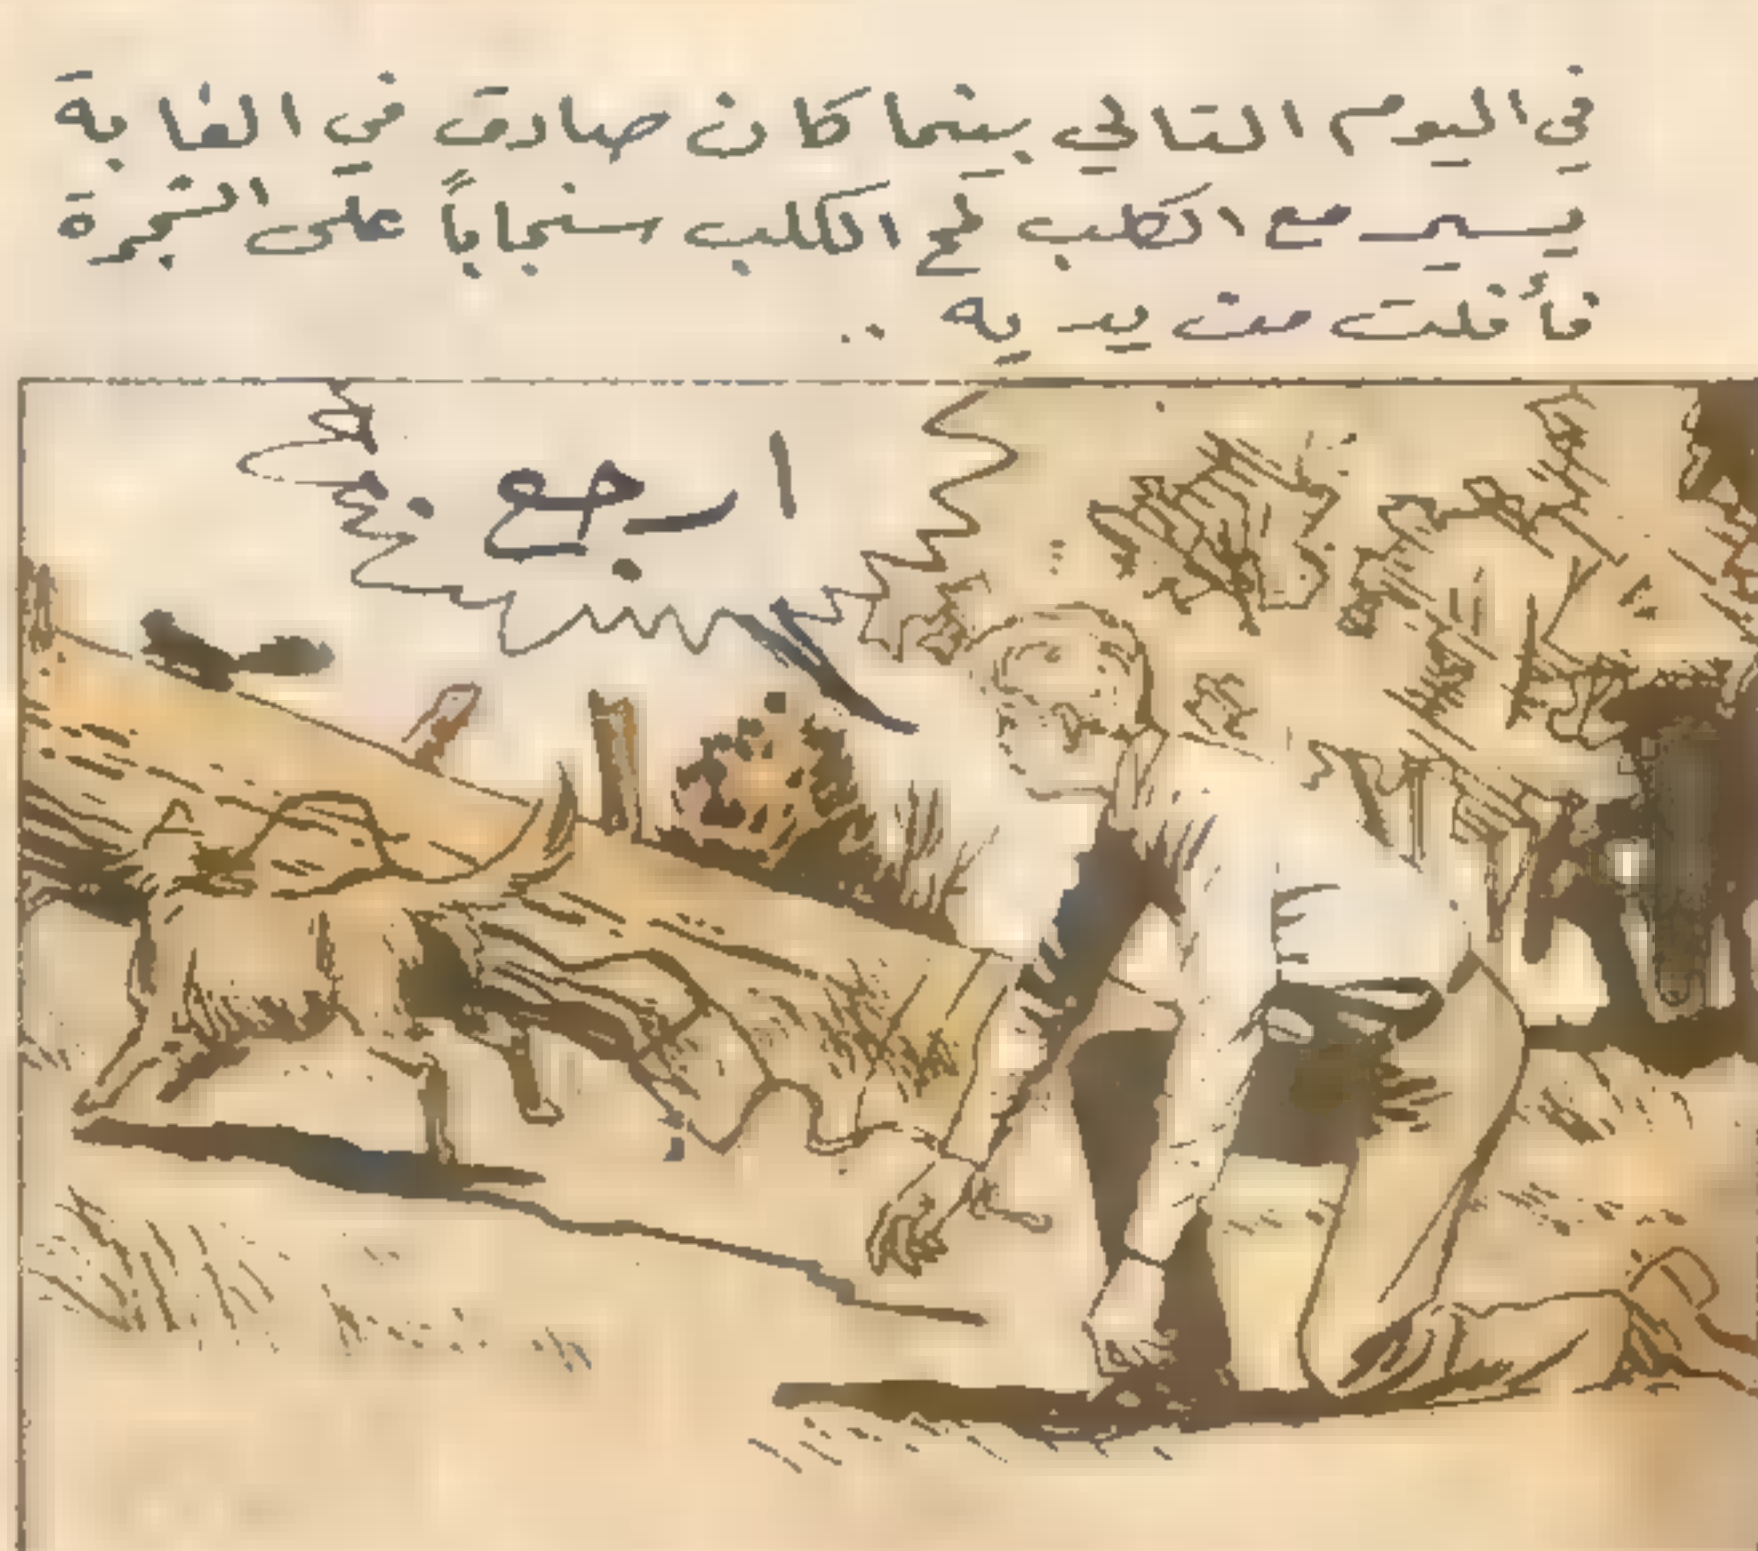 في اليوم التالي بينما كان صادق في الغابة
يسير مع الكلب لمح الكلب سنجاباً على الشجرة
فأفلت من يديه ..
ارجع .